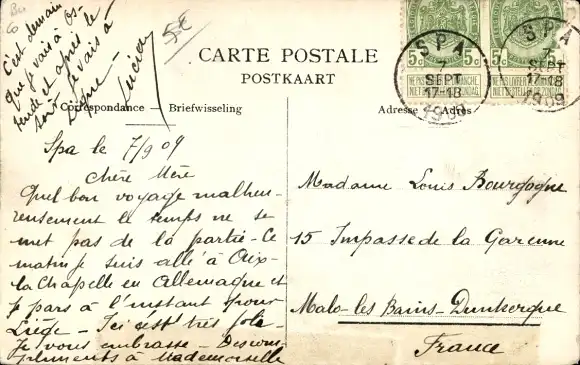 C'est demain
que je vais à Os-
tende et après le
soir je vais à
Lucien
5c
CARTE POSTALE
POSTKAART
Correspondance — Briefwisseling
Adresse — Adres
SPA
7
SEPT
17-18
1909
SPA
7
SEPT
17-18
1909
5c 5c 5c
NE PAS LIVRER LE DIMANCHE
NIET BESTELLEN OP ZONDAG
Spa le 7/9 09
Chère Mère
Quel bon voyage malheu-
reusement le temps ne se
met pas de la partie - Ce
matin je suis allé à Aix-
la Chapelle en Allemagne et
je pars à l'instant pour
Liège - Ici c'est très joli
Je vous embrasse - Des com-
pliments à Mademoiselle
Madame Louis Bourgogne
15 Impasse de la Garenne
Malo-les Bains-Dunkerque
France